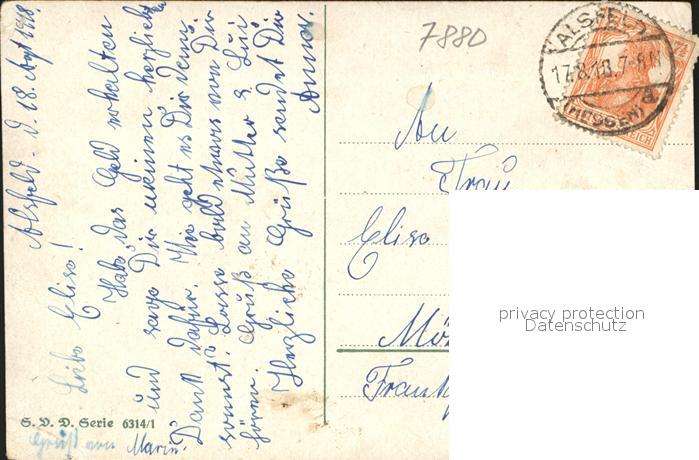 Alsfeld. d. 18. Aug. 1918.
Liebe Elise!
Habe das Geld erhalten
und sage Dir meinen herzlichsten
Dank dafür. Wie geht es Dir denn
sonst? Lasse bald etwas von Dir
hören. Gruß an Mutter &
Herzliche Grüße sendet Dir
Anna.
S. V. D. Serie 6314/1
Gruß von Marie.
7880
ALSFELD
17.8.18.7-8N
(HESSEN)
An
Frau
Elise
privacy protection
Datenschutz